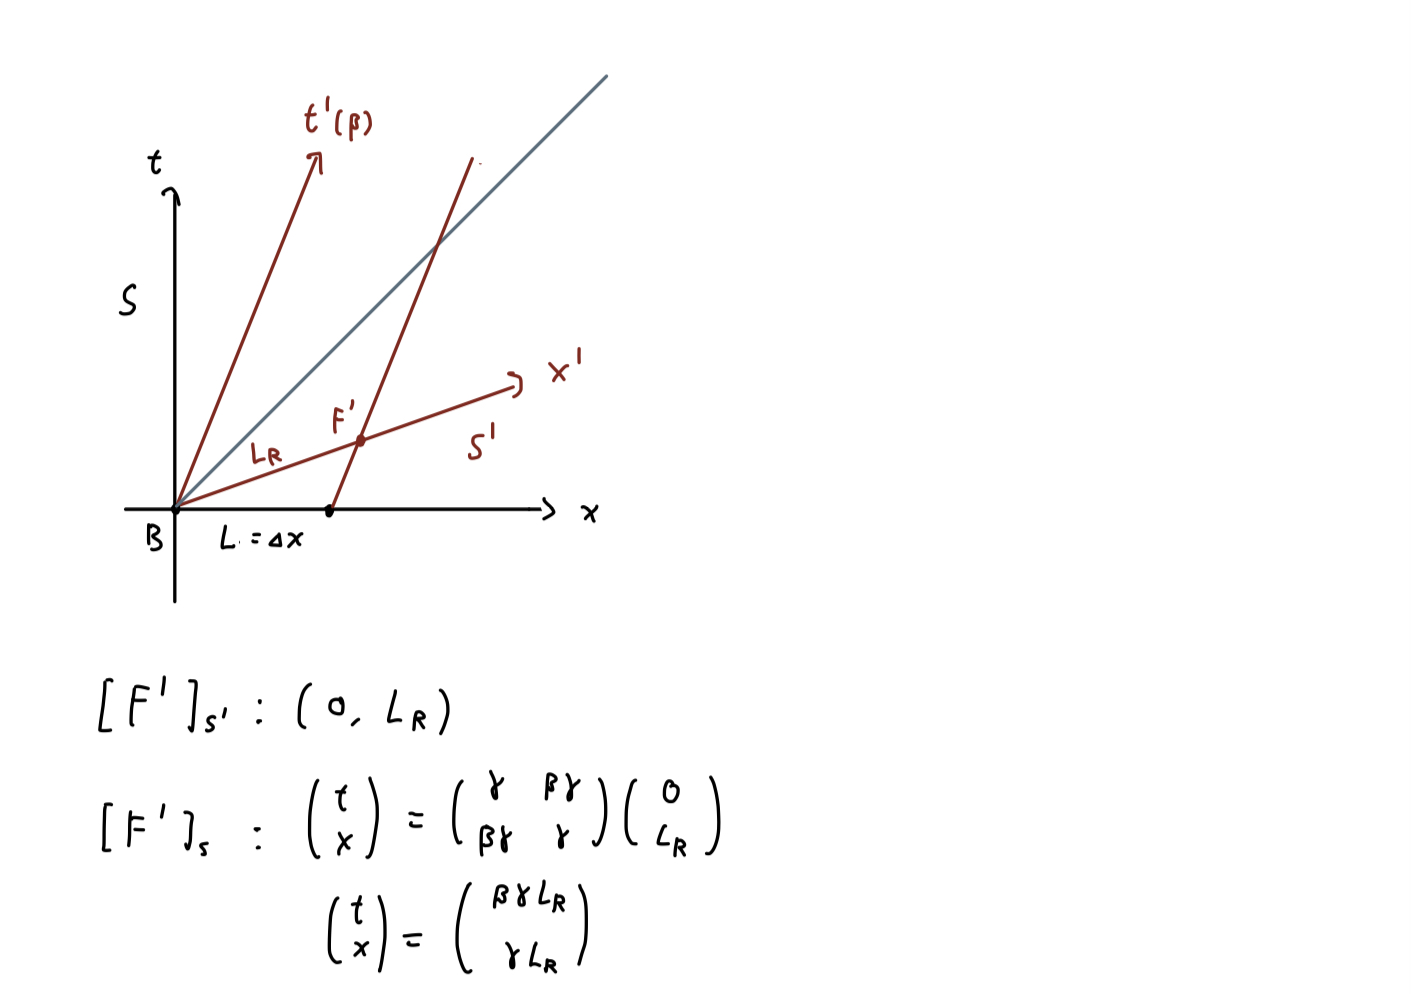 t'(β)
t
S
x'
F'
S'
LR
x
B
L = Δx
[F']s' : (0, LR)
[F']s : (t x) = (γ βγ βγ γ)(0 LR)
(t x) = (βγLR γLR)